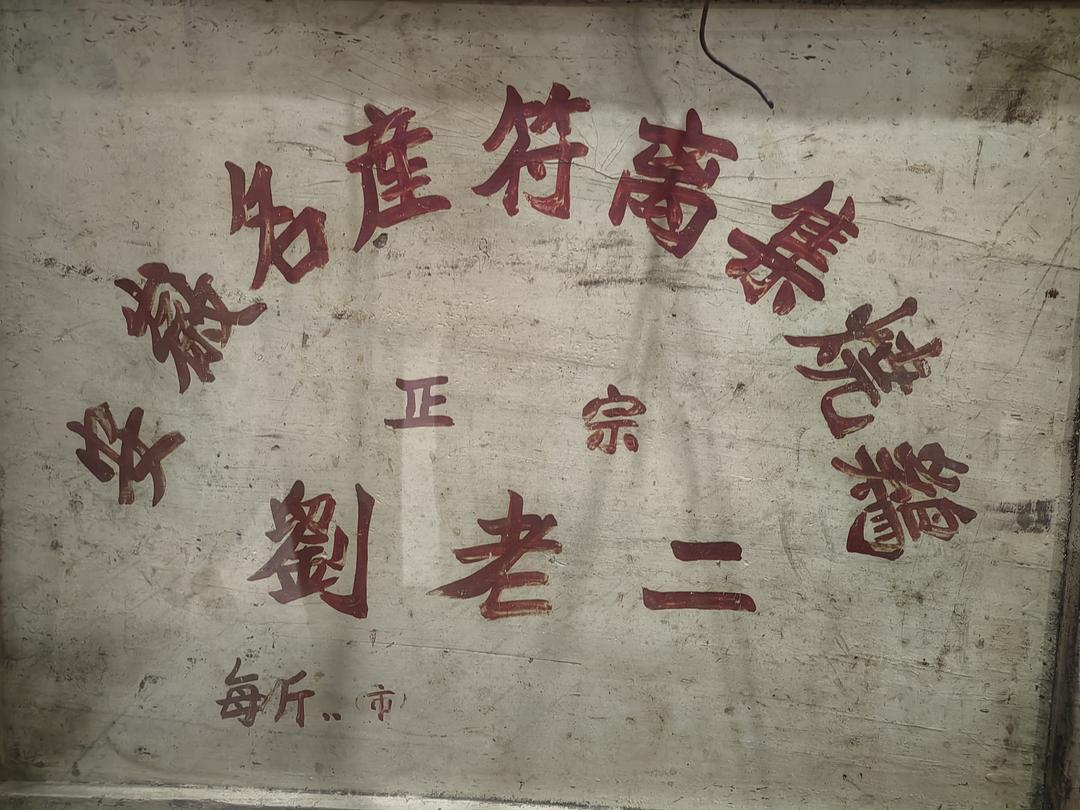 安徽名産符离集燒鷄
正宗
劉老二
每斤..(市)